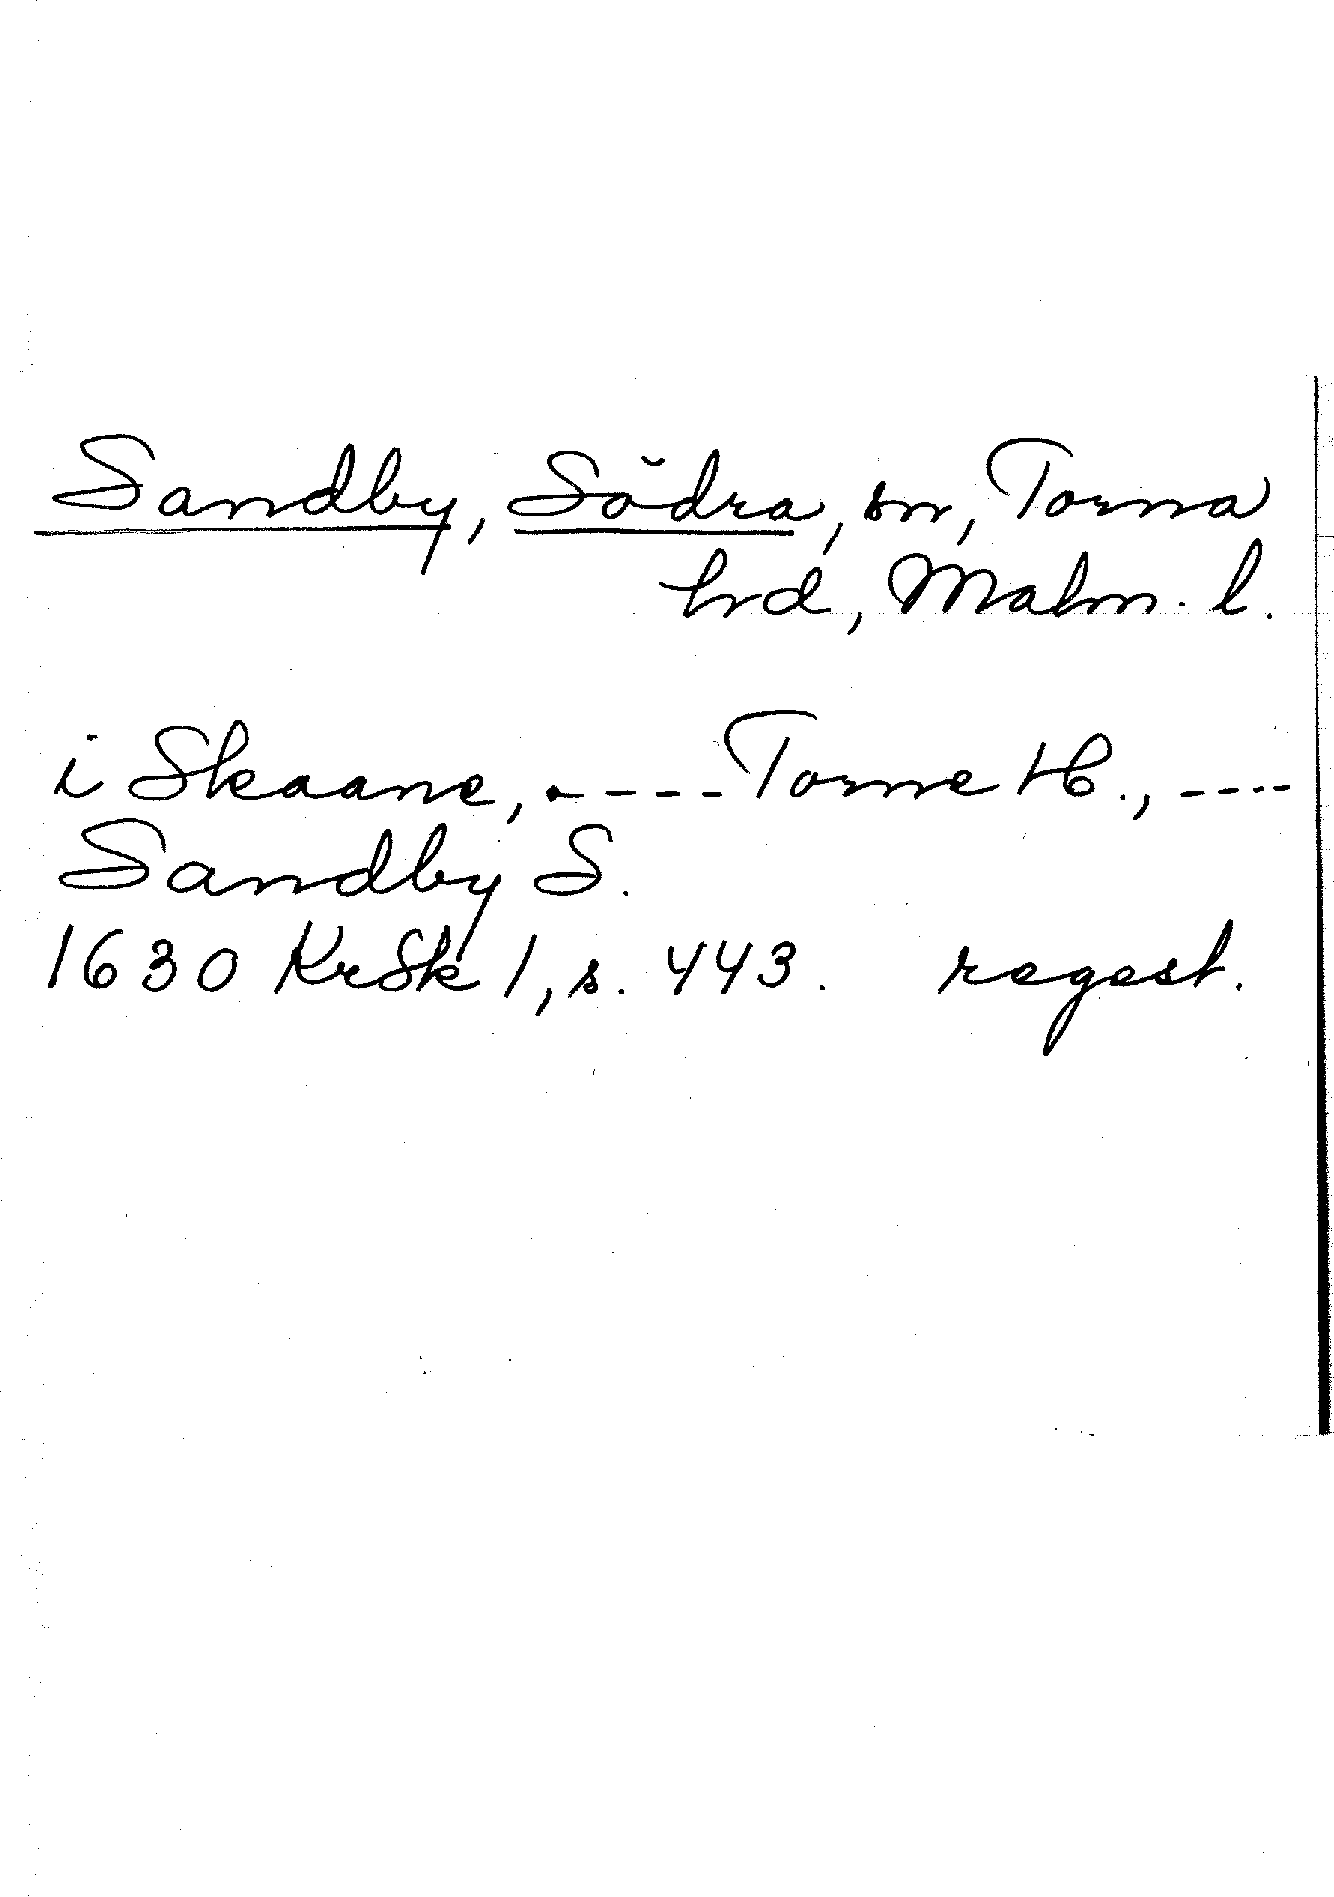 Sandby, Södra, sn, Torna
hrd, Malm. l.
i Skaane, ----- Torne H., ----
Sandby S.
1630 KrSk 1, s. 443. regest.